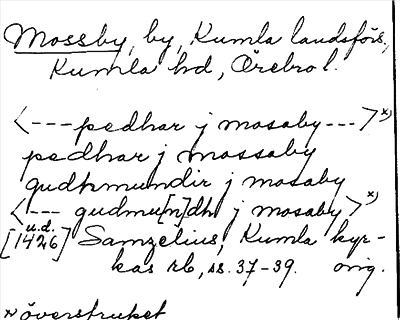 Mossby, by, Kumla landsförs.,
Kumla hd, Örebro l.
<--- pedhar j mosaby --->x)
pedhar j mossaby
gudhmundir j mosaby
<--- gudmu[n]dh j mosaby>x)
u.d.
[1426] Samzelius, Kumla kyr-
kas rb, ss. 37-39. orig.
x) överstruket